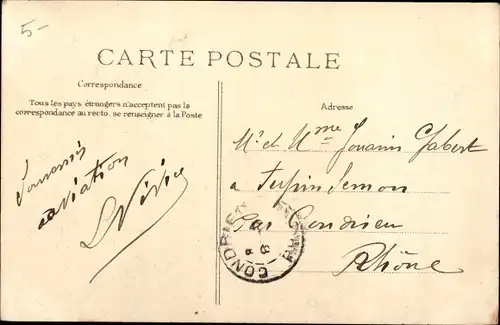 5-
CARTE POSTALE
Correspondance
Tous les pays étrangers n'acceptent pas la
correspondance au recto, se renseigner à la Poste
Adresse
Mr et Mme Jouanin Gabert
a Tupin Semon
Par Condrieu
Rhône
CONDRIEU